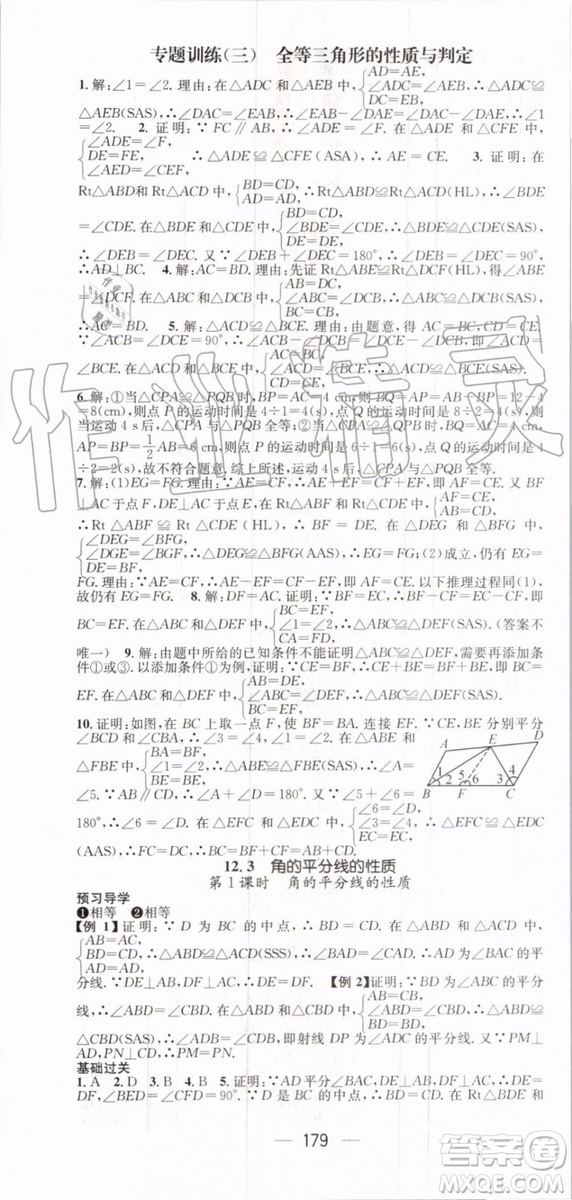 专题训练(三)　全等三角形的性质与判定
1. 解:∠1=∠2. 理由:在△ADC 和△AEB 中,{AD=AE, ∴△ADC≌
△AEB(SAS),∴∠DAC=∠EAB,∴∠EAB-∠DAE=∠DAC-∠DAE,∴∠1
=∠2.　2. 证明:∵FC∥AB,∴∠A=∠FCE. 在△ADE 和△CFE 中,
{∠ADE=∠F,
DE=FE,
∠AED=∠CEF, ∴△ADE≌△CFE(ASA),∴AE=CE.　3. 证明:在
Rt△ABD和Rt△ACD 中,{BD=CD,
AD=AD, ∴Rt△ABD≌Rt△ACD(HL),∴∠BDE
=∠CDE. 在△BDE 和△CDE 中,{BD=CD,
∠BDE=∠CDE,
DE=DE, ∴△BDE≌△CDE(SAS),
∴∠DEB=∠DEC. 又∵∠DEB+∠DEC=180°,∴∠DEB=∠DEC=90°,
∴AD⊥BC.　4. 解:AC=BD. 理由:先证 Rt△ABE≌Rt△DCF(HL),得∠ABE
=∠DCF. 在△ABC 和△DCB 中,{AB=DC,
∠ABC=∠DCB,
BC=CB, ∴△ABC≌△DCB(SAS),
∴AC=BD.　5. 解:△ACD≌△BCE. 理由:由题意,得AC=BC,CD=CE,
∵∠ACB=∠DCE=90°,∴∠ACD=∠BCE. 在△ACD 和△BCE 中,{AC=BC,
∠ACD=
∠BCE,
CD=CE, ∴△ACD≌△BCE(SAS).
6. 解:①当△CPA≌△PQB 时,BP=AC=4 cm,则BQ=AP=AB-BP=12-4
=8(cm),则点 P 的运动时间是 4÷1=4(s),点 Q 的运动时间是 8÷2=4(s),则
当运动 4 s 后,△CPA 与△PQB 全等;②当△CPA≌△QPB 时,BQ=AC=4 cm,
AP=BP=1/2 AB=6 cm,则点 P 的运动时间是 6÷1=6(s),点 Q 的运动时间是 4
÷2=2(s),故不符合题意. 综上所述,运动 4 s 后,△CPA 与△PQB 全等.
7. 解:(1)EG=FG. 理由:∵AE=CF,∴AE+EF=CF+EF,即AF=CE. 又∵BF
⊥AC 于点 F,DE⊥AC 于点 E,∴在 Rt△ABF 和 Rt△CDE 中,{AB=CD,
AF=CE,
∴Rt△ABF≌Rt△CDE(HL),∴BF=DE. 在△DEG 和△BFG 中,
{∠DEG=∠BFG,
∠DGE=∠BGF,
DE=BF, ∴△DEG≌△BFG(AAS),∴EG=FG;(2)成立,仍有 EG=
FG. 理由:∵AE=CF,∴AE-EF=CF-EF,即AF=CE. 以下推理过程同(1),
故仍有EG=FG.　8. 解:DF=AC. 证明:∵BF=EC,∴BF+FC=EC+CF,即
BC=EF. 在△ABC 和△DEF 中,{BC=EF,
∠1=∠2,
CA=FD, ∴△ABC≌△DEF(SAS). (答案不
唯一)　9. 解:由题中所给的已知条件不能证明△ABC≌△DEF,需要再添加条
件①或③. 以添加条件①为例,证明:∵CE=BF,∴CE+BE=BF+BE,即BC=
EF. 在△ABC 和△DEF 中,{AB=DE,
AC=DF,
BC=EF, ∴△ABC≌△DEF(SSS).
10. 证明:如图,在 BC 上取一点 F,使 BF=BA,连接 EF. ∵CE,BE 分别平分
∠BCD 和∠CBA,∴∠3=∠4,∠1=∠2. 在△ABE 和
△FBE 中,{AB=FB,
∠1=∠2,
BE=BE, ∴△ABE≌△FBE(SAS),∴∠A=
∠5. ∵AB∥CD,∴∠A+∠D=180°. 又∵∠5+∠6=
180°,∴∠6=∠D. 在△EFC 和△EDC 中,{∠6=∠D,
∠3=∠4,
EC=EC, ∴△EFC≌△EDC
(AAS),∴FC=CD,∴BC=BF+CF=AB+CD.
A E D
1 2 5 6 3 4
B F C
12.3　角的平分线的性质
第 1 课时　角的平分线的性质
预习导学
❶相等　❷相等
【例 1】证明:∵D 为 BC 的中点,∴BD=CD. 在△ABD 和△ACD 中,
{AB=AC,
BD=CD,
AD=AD, ∴△ABD≌△ACD(SSS),∴∠BAD=∠CAD,∴AD 为∠BAC 的平
分线. ∵DE⊥AB,DF⊥AC,∴DE=DF.　【例 2】证明:∵BD 为∠ABC 的平分
线,∴∠ABD=∠CBD. 在△ABD 和△CBD 中,{AB=BC,
∠ABD=∠CBD,
BD=BD, ∴△ABD≌
△CBD(SAS),∴∠ADB=∠CDB,即射线 DP 为∠ADC 的平分线. 又∵PM⊥
AD,PN⊥CD,∴PM=PN.
基础过关
1. A　2. D　3. B　4. B　5. 证明:∵AD平分∠BAC,DE⊥AB,DF⊥AC,∴DE=
DF,∠BED=∠CFD=90°. 在 Rt△BDE 和 Rt△CDF 中,{BD=CD,
DE=DF, ∴Rt△BDE
179
作业精灵
答案圈